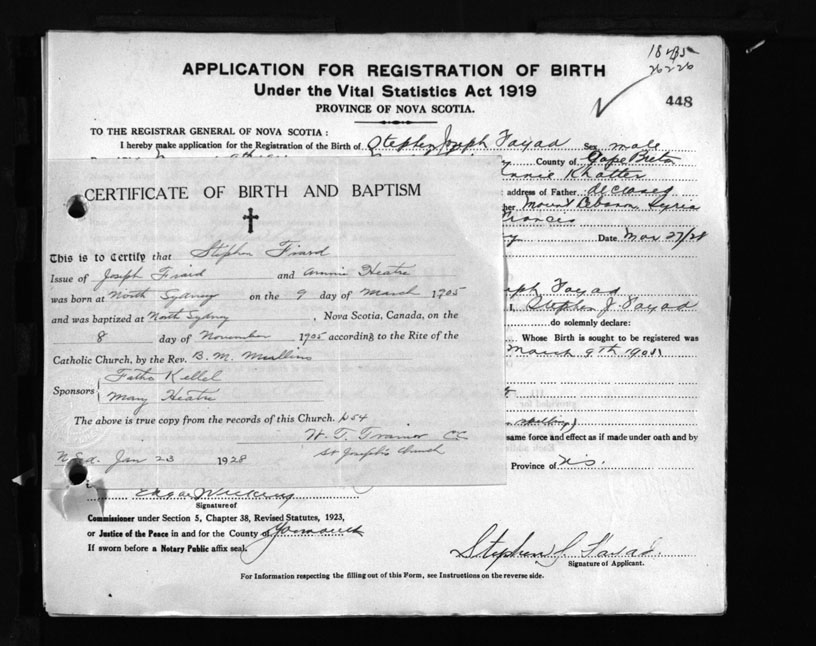 18435
26226
APPLICATION FOR REGISTRATION OF BIRTH
Under the Vital Statistics Act 1919
PROVINCE OF NOVA SCOTIA.
448
TO THE REGISTRAR GENERAL OF NOVA SCOTIA :
I hereby make application for the Registration of the Birth of Stephen Joseph Fayad Sex male
County of Cape Breton
Annie Khatter
address of Father Deceased
Mount Lebanon Syria
Frances
Date Mar 27/28
CERTIFICATE OF BIRTH AND BAPTISM
This is to Certify that Stephen Fiard
Issue of Joseph Fiard and Annie Heatre
was born at North Sydney on the 9 day of March 1905
and was baptized at North Sydney, Nova Scotia, Canada, on the
8 day of November 1905 according to the Rite of the
Catholic Church, by the Rev. B. M. Mullins
Sponsors Fatho Kellel
Mary Heatre
The above is true copy from the records of this Church. p 54
W. T. Trainor CC
St Joseph's Church
N.Sd. Jan 23 1928
Joseph Fayad
I, Stephen J. Fayad
do solemnly declare:
Whose Birth is sought to be registered was
March 9th 1905
same force and effect as if made under oath and by
Province of N.S.
Signature of
Commissioner under Section 5, Chapter 38, Revised Statutes, 1923,
or Justice of the Peace in and for the County of Yarmouth
If sworn before a Notary Public affix seal.
Stephen J. Fayad
Signature of Applicant.
For Information respecting the filling out of this Form, see Instructions on the reverse side.